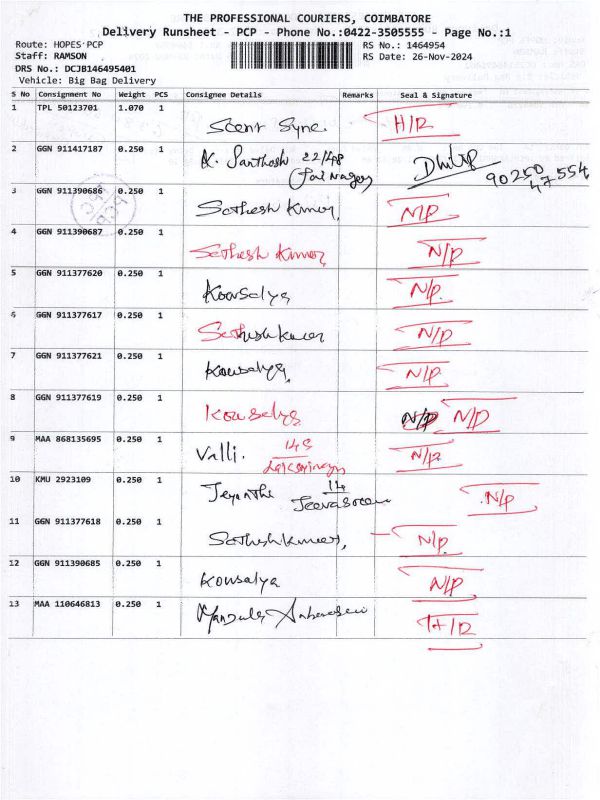 THE PROFESSIONAL COURIERS, COIMBATORE
Delivery Runsheet - PCP - Phone No.:0422-3505555 - Page No.:1
Route: HOPES PCP RS No.: 1464954
Staff: RAMSON RS Date: 26-Nov-2024
DRS No.: DCJB146495401
Vehicle: Big Bag Delivery
S No Consignment No Weight PCS Consignee Details Remarks Seal & Signature
1 TPL 50123701 1.070 1 Scent Sync. H/R
2 GGN 911417187 0.250 1 K. Santhosh 22/48 Dhilip
Jai Nagar 90250 47554
3 GGN 911390686 0.250 1 Sathesh Kumar, N/P
4 GGN 911390687 0.250 1 Sathesh Kumar N/P
5 GGN 911377620 0.250 1 Kowsalya N/P.
6 GGN 911377617 0.250 1 Sathishkumar N/P
7 GGN 911377621 0.250 1 Kowsalya. N/P
8 GGN 911377619 0.250 1 Kowsalya N/P N/P
9 MAA 868135695 0.250 1 Valli. 145 N/P
10 KMU 2923109 0.250 1 Jeyanthe 14 N/P
11 GGN 911377618 0.250 1 Satheshkumar, N/P.
12 GGN 911390685 0.250 1 Kowsalya N/P
13 MAA 110646813 0.250 1 Manjula H/R